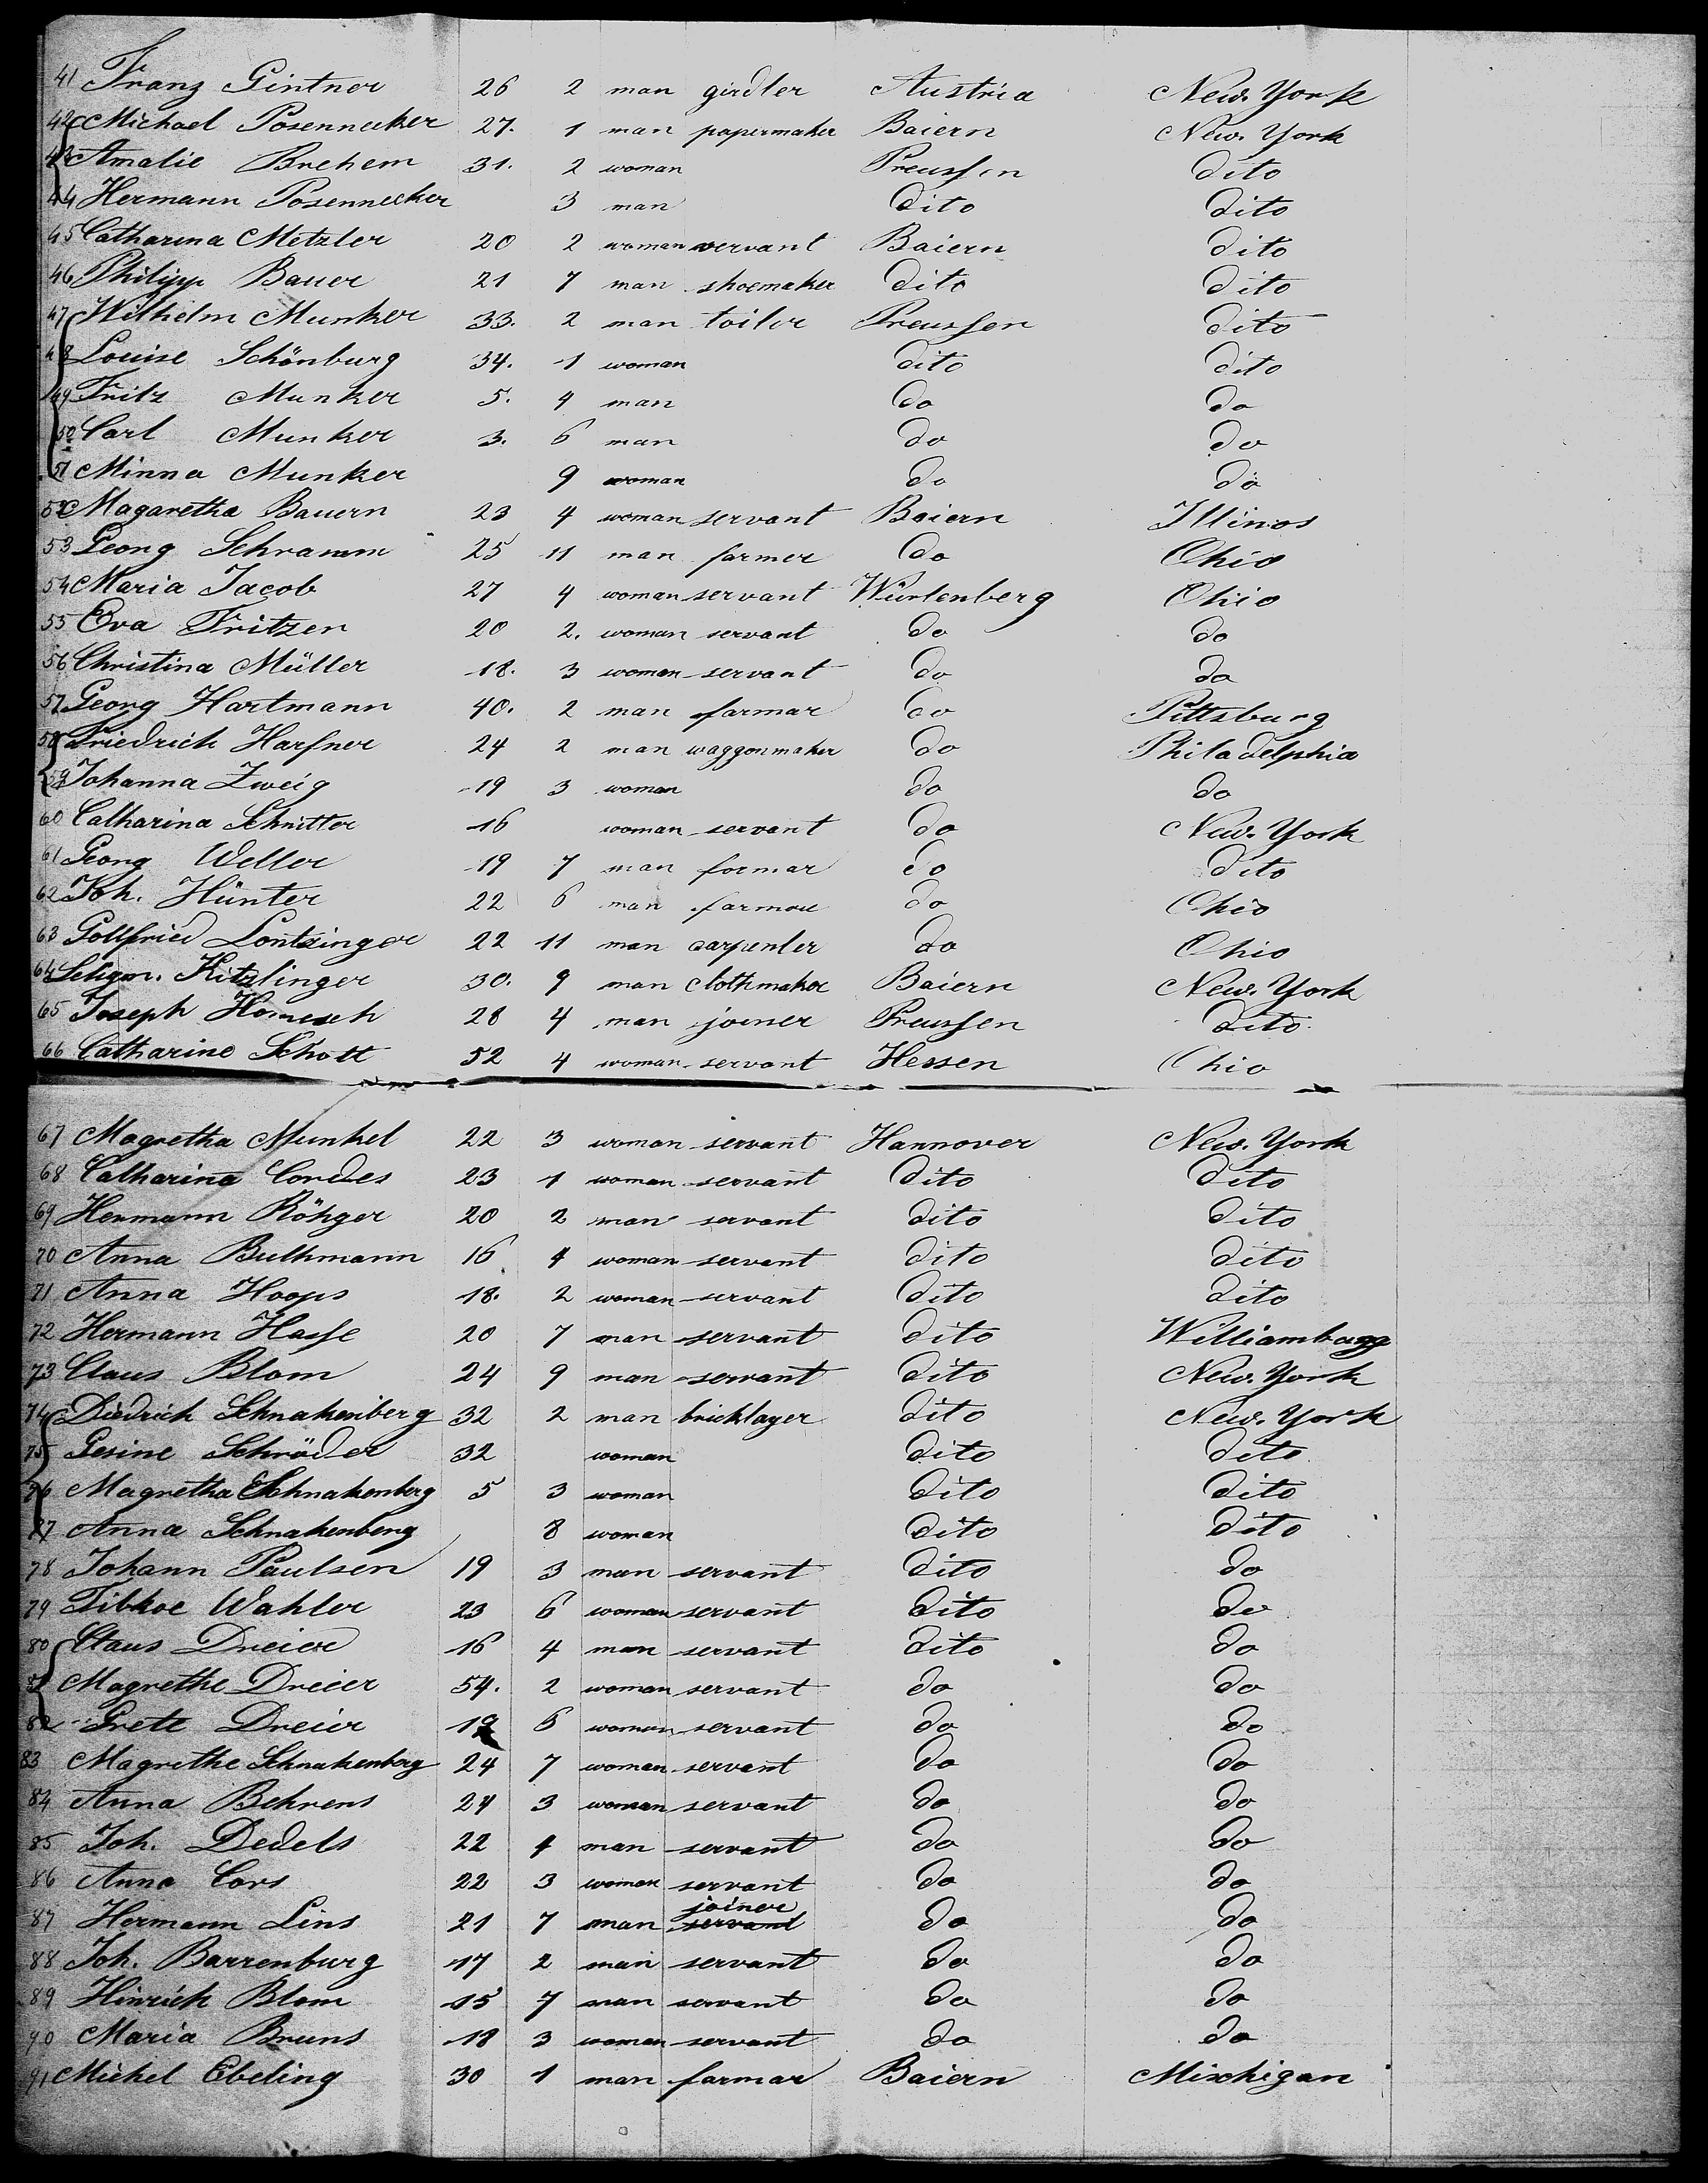 41 Franz Gintner 26 2 man girdler Austria New York
42 Michael Posennecker 27. 1 man papermaker Baiern New York
43 Amalie Brehem 31. 2 woman Preussen dito
44 Hermann Posennecker 3 man dito dito
45 Catharina Metzler 20 2 woman servant Baiern dito
46 Philipp Bauer 21 7 man shoemaker dito dito
47 Wilhelm Munker 33. 2 man toiler Preussen dito
48 Louise Schönburg 34. 1 woman dito dito
49 Fritz Munker 5. 4 man do do
50 Carl Munker 3. 6 man do do
51 Minna Munker 9 woman do do
52 Magaretha Bauern 23 4 woman servant Baiern Illinos
53 Georg Schramm 25 11 man farmer do Ohio
54 Maria Jacob 27 4 woman servant Würtenberg Ohio
55 Eva Fritzer 20 2. woman servant do do
56 Christina Müller 18. 3 woman servant do do
57 Georg Hartmann 40. 2 man farmar do Pittsburg
58 Friedrich Harfner 24 2 man waggonmaker do Philadelphia
59 Johanna Zweig 19 3 woman do do
60 Catharina Schnitter 16 woman servant do New York
61 Georg Weller 19 7 man formar do dito
62 Joh. Hünter 22 6 man farmar do Ohio
63 Gottfried Lontzinger 22 11 man carpenter do Ohio
64 Kitzlinger 30. 9 man clothmaker Baiern New York
65 Joseph 28 4 man joiner Preussen dito
66 Catharine Schott 52 4 woman servant Hessen Ohio
67 Magretha Munkel 22 3 woman servant Hannover New York
68 Catharina Cordes 23 1 woman servant dito dito
69 Hermann Röhger 20 2 man servant dito dito
70 Anna Buthmann 16 4 woman servant dito dito
71 Anna Hoops 18. 2 woman servant dito dito
72 Hermann Hasse 20 7 man servant dito Williamburg
73 Claus Blom 24 9 man servant dito New York
74 Diedrich Schnakenberg 32 2 man bricklager dito New York
75 Gesine Schröder 32 woman dito dito
76 Magretha Schnakenberg 5 3 woman dito dito
77 Anna Schnakenberg 8 woman dito dito
78 Johann Paulsen 19 3 man servant dito do
79 Tibkoe Wahler 23 6 woman servant dito do
80 Claus Dreier 16 4 man servant dito do
81 Magrethe Dreier 54. 2 woman servant do do
82 Grete Dreier 19 6 woman servant do do
83 Magrethe Schnakenberg 24 7 woman servant do do
84 Anna Behrens 24 3 woman servant do do
85 Joh. Dedels 22 4 man servant do do
86 Anna Cors 22 3 woman servant do do
87 Hermann Lins 21 7 man servant joiner do do
88 Joh. Barrenburg 17 2 man servant do do
89 Hinrich Blom 15 7 man servant do do
90 Maria Bruns 18 3 woman servant do do
91 Michel Ebeling 30 1 man farmar Baiern Mischigan